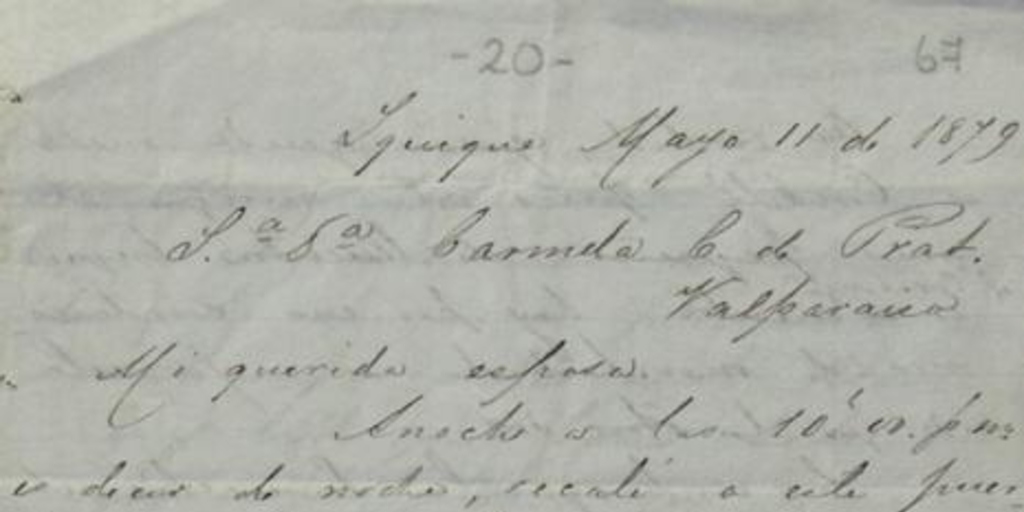 -20- 67
Iquique Mayo 11 de 1879
S.ª Dª Carmela C. de Prat.
Valparaiso
Mi querida esposa.
Anoche a las 10 pm
es decir de noche, recalé a este puer-